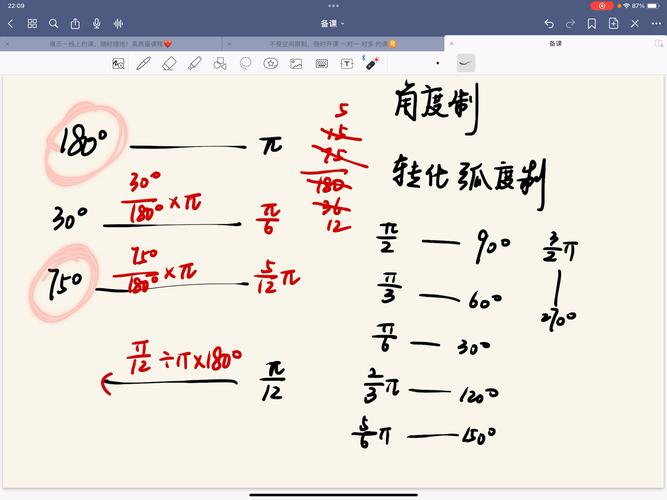 22:09
备课
87%
展示一线上约课,随时随地!高质量课程
不受空间限制,随时开课 一对一 对多 约课
备课
角度制
转化弧度制
180° π
30° 30°/180° × π π/6
75° 75°/180° × π 5/12 π
π/12 ÷ π × 180° π/12
5
15
75
180
36
12
π/2 — 90°
π/3 — 60°
π/6 — 30°
2/3 π — 120°
5/6 π — 150°
3/2 π
270°